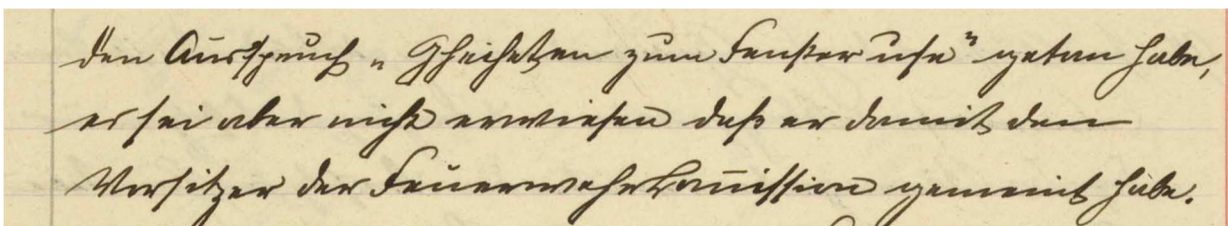 den Ausspruch „Gheiheten zum Fenster use" getan habe,
es sei aber nicht erwiesen daß er damit den
Vorsitzer der Feuerwehrkom̅ission gemeint habe.